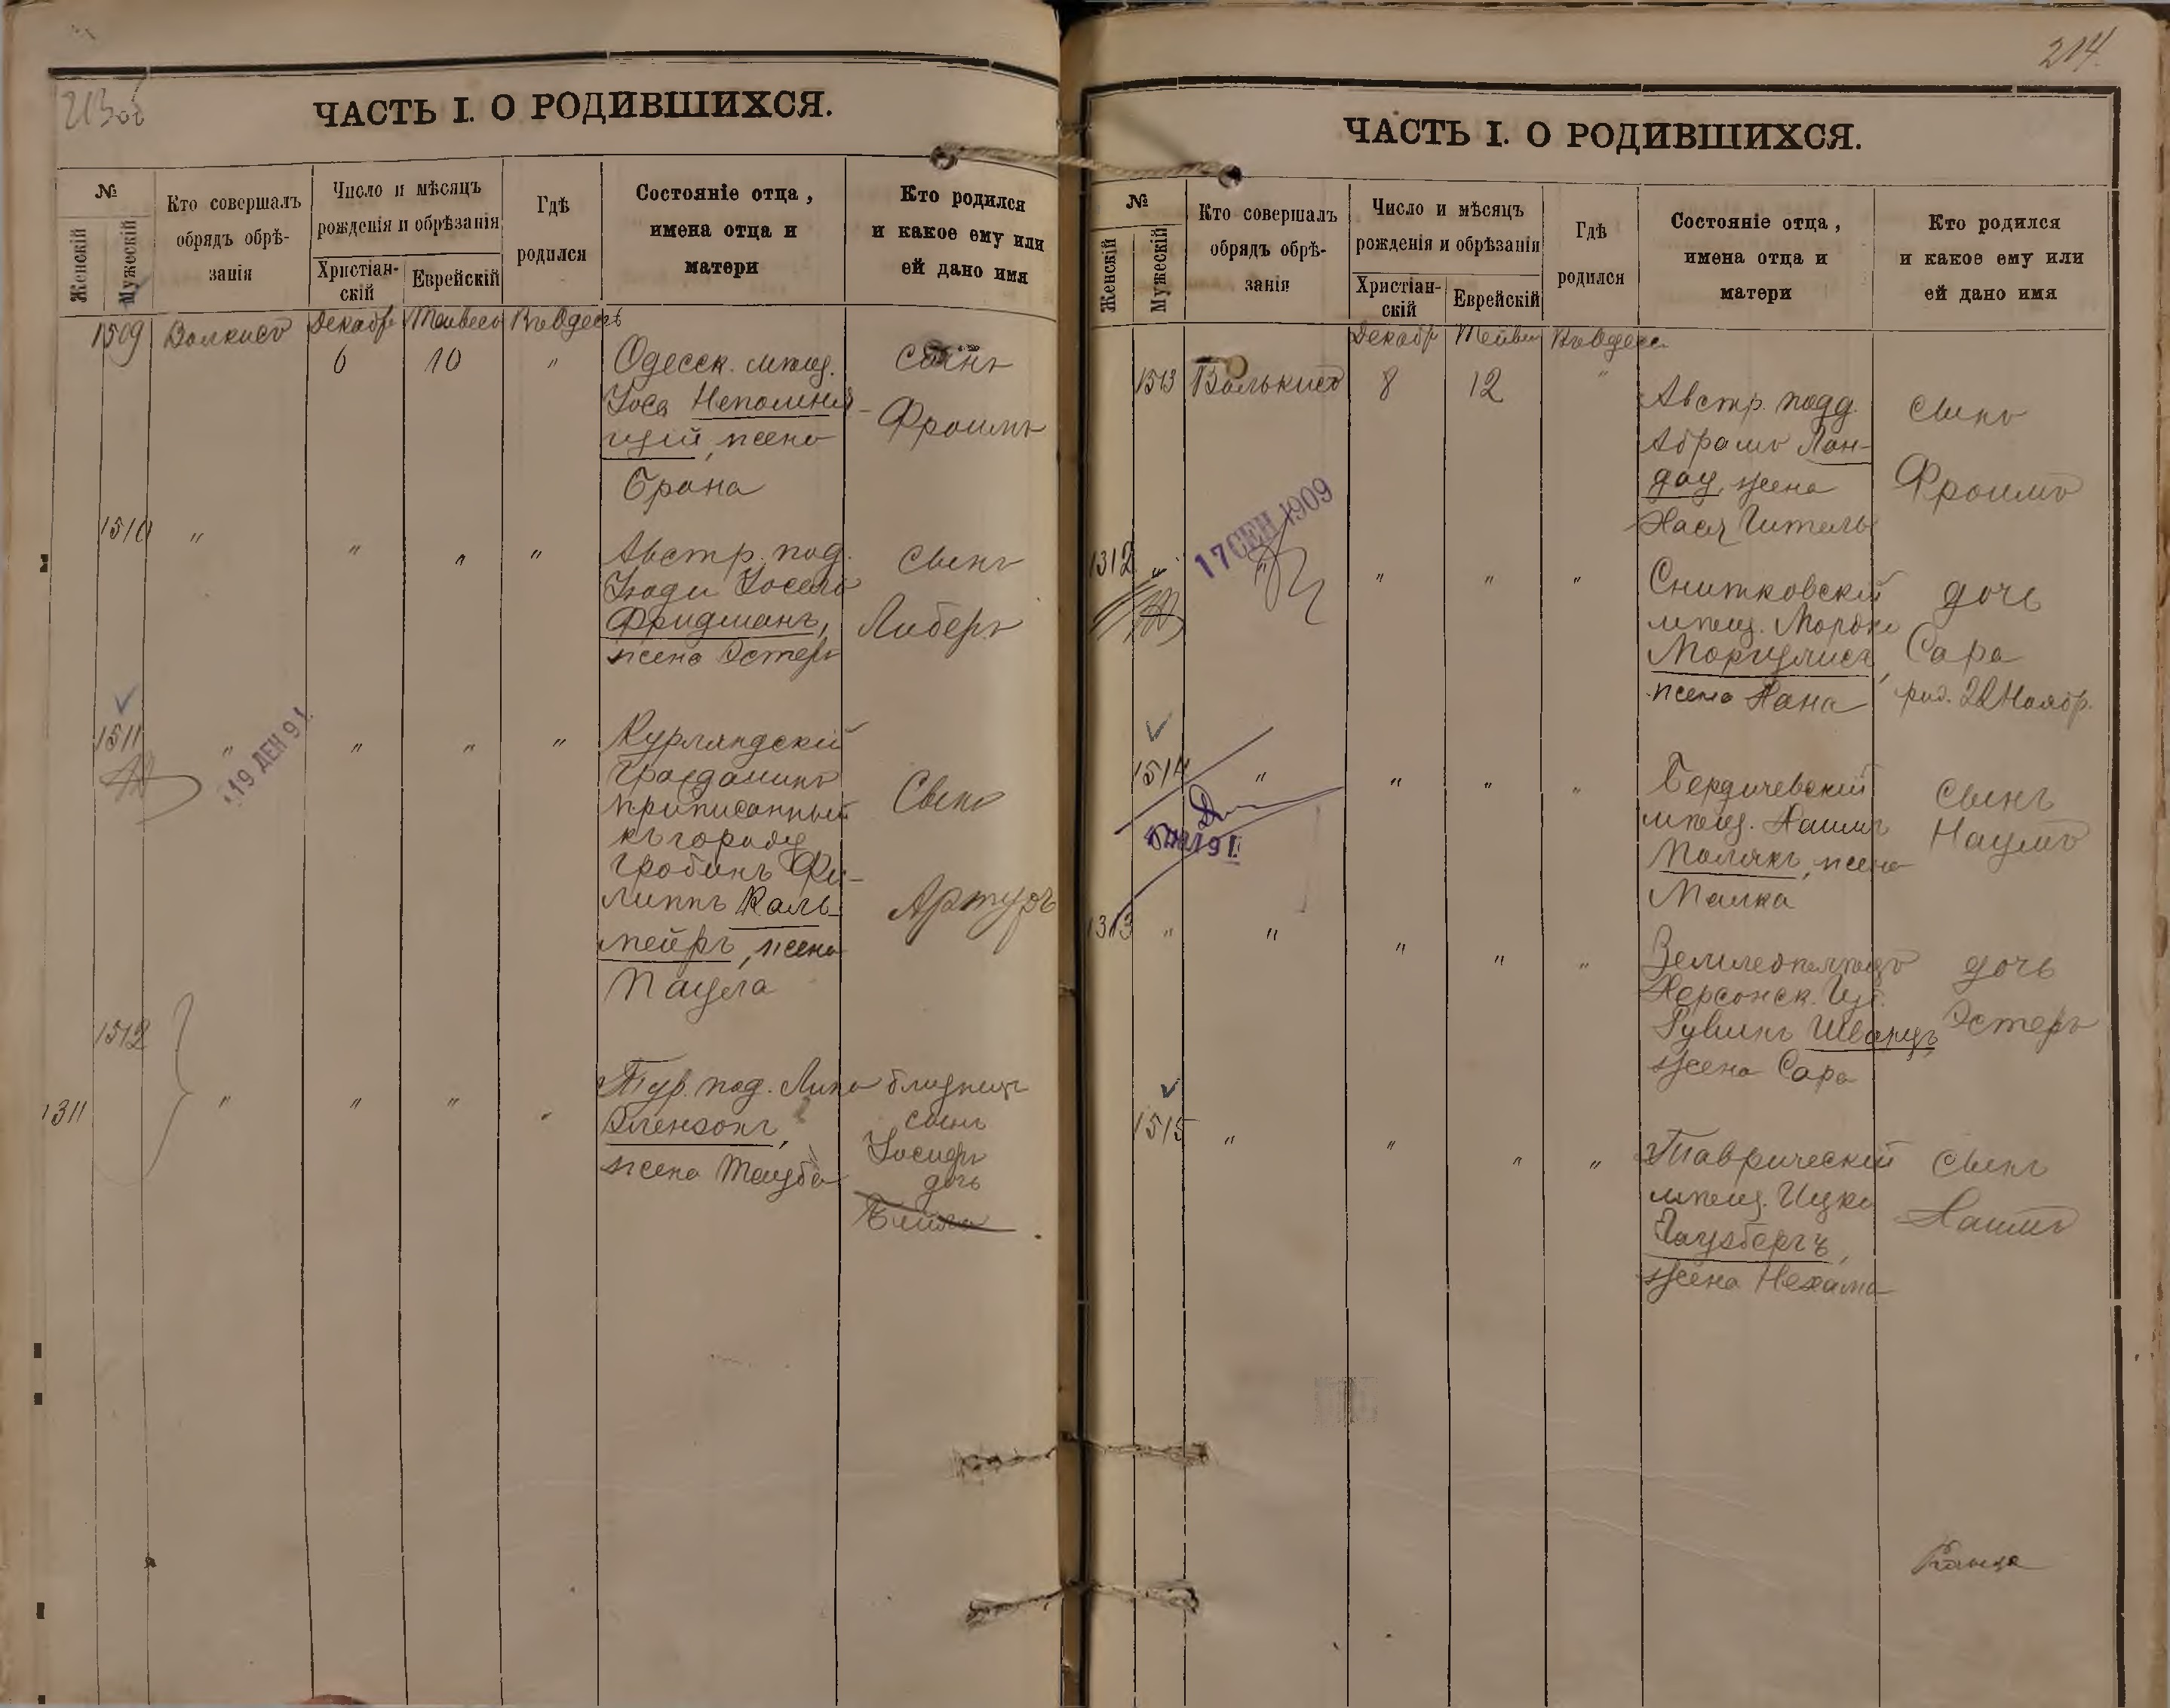 213 об
ЧАСТЬ I. О РОДИВШИХСЯ.
№
Женскій
Мужескій
Кто совершалъ
обрядъ обрѣ-
занія
Число и мѣсяцъ
рожденія и обрѣзанія
Христіан-
скій
Еврейскій
Гдѣ
родился
Состояніе отца,
имена отца и
матери
Кто родился
и какое ему или
ей дано имя
1509
Декабр
Въ Одессѣ
6
10
"
Одесск. мѣщ.
Іось Непомня-
щій, жена
Брана
сынъ
Фроимъ
1510
"
"
"
"
Австр. под.
Фридманъ,
жена Эстеръ
сынъ
Либеръ
1511
"
19 ДЕК 91.
"
"
"
Курляндскій
гражданинъ
приписанный
къ городу
Гробинъ Фи-
липпъ Каль-
мейръ, жена
Паула
Сынъ
Артуръ
1512
1311
"
"
"
"
Тур. под.
жена Тауба
близнецы
сынъ
Іосифъ
дочь
Бейла
214.
ЧАСТЬ I. О РОДИВШИХСЯ.
№
Женскій
Мужескій
Кто совершалъ
обрядъ обрѣ-
занія
Число и мѣсяцъ
рожденія и обрѣзанія
Христіан-
скій
Еврейскій
Гдѣ
родился
Состояніе отца,
имена отца и
матери
Кто родился
и какое ему или
ей дано имя
Декабр
Въ Одессѣ
1513
8
12
"
Австр. подд.
Абрамъ Лан-
дау, жена
Хася Гитель
сынъ
Фроимъ
1312
"
17 СЕН 1909
"
"
"
Снитковскій
мѣщ. Мордко
Моргулисъ,
жена Хана
дочь
Сара
род. 22 Ноябр.
1514
"
"
"
"
Бердичевскій
мѣщ. Хаимъ
Полякъ, жена
Малка
сынъ
Наумъ
1313
"
"
"
"
"
Херсонск. Губ.
Рувинъ Шварцъ,
жена Сара
дочь
Эстеръ
1515
"
"
"
"
Таврическій
мѣщ. Ицко
Гаузбергъ,
жена Нехама
сынъ
Хаимъ